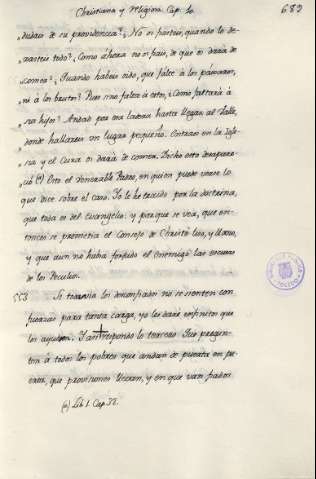 Christiana y Religiosa Cap. 10.
689
"dudado de su providencia? No os fiasteis, quando lo de-
"xasteis todo? Como ahora no os fiais, de que os daria de
"comer? Quando habeis oido, que falte à los pajaros,
"ni à los brutos? Pues si no falta à estos, Como faltaria à
"sus hijos? Andad por esa ladera hasta llegar al Valle,
donde hallareis un lugar pequeño. Entraos en la Igle-
sia y el Cura os daria de comer. Dicho esto desapare-
ció (a) Esto el Venerable Padre, en quien puede verse lo
que dice sobre el caso. Yo le he traido por la doctrina,
que toda es del Evangelio: y porque se vea, que en-
tonces se prometia el Consejo de Christo Uso, y llano,
y que aun no habia perdido el enemigo las escusas
de los Peculios.
553 Si todavia los desconfiados no se sienten con
fuerzas para tanta carga, yo les daré infinitos que
los ayuden. Y así respondo lo tercero: Que pregun-
ten à todos los pobres que andan de puerta en pu-
erta, que provisiones llevan, y en que van fiados
(a) Lib. 1. Cap. 32.